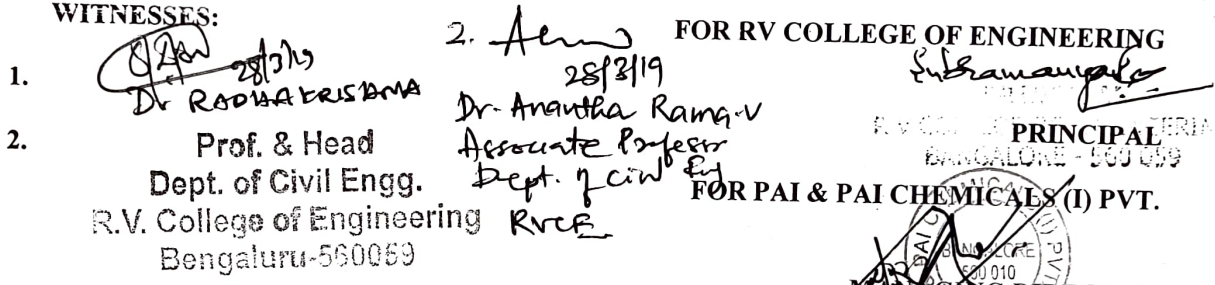 WITNESSES:
1.
28/3/19
Dr RADHAKRISHNA
2.
Prof. & Head
Dept. of Civil Engg.
R.V. College of Engineering
Bengaluru-560059
2.
28/3/19
Dr. Anantha Rama.V
Associate Professor
Dept. of Civil Eng
RVCE
FOR RV COLLEGE OF ENGINEERING
Subramanya
PRINCIPAL
BANGALORE - 560 059
FOR PAI & PAI CHEMICALS (I) PVT.
BANGALORE
560 010